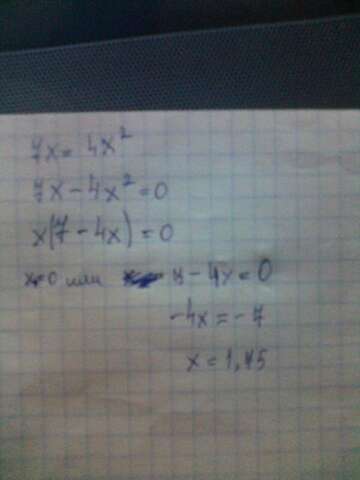 7x = 4x²
7x - 4x² = 0
x(7 - 4x) = 0
x=0 или 7 - 4x = 0
-4x = -7
x = 1,75